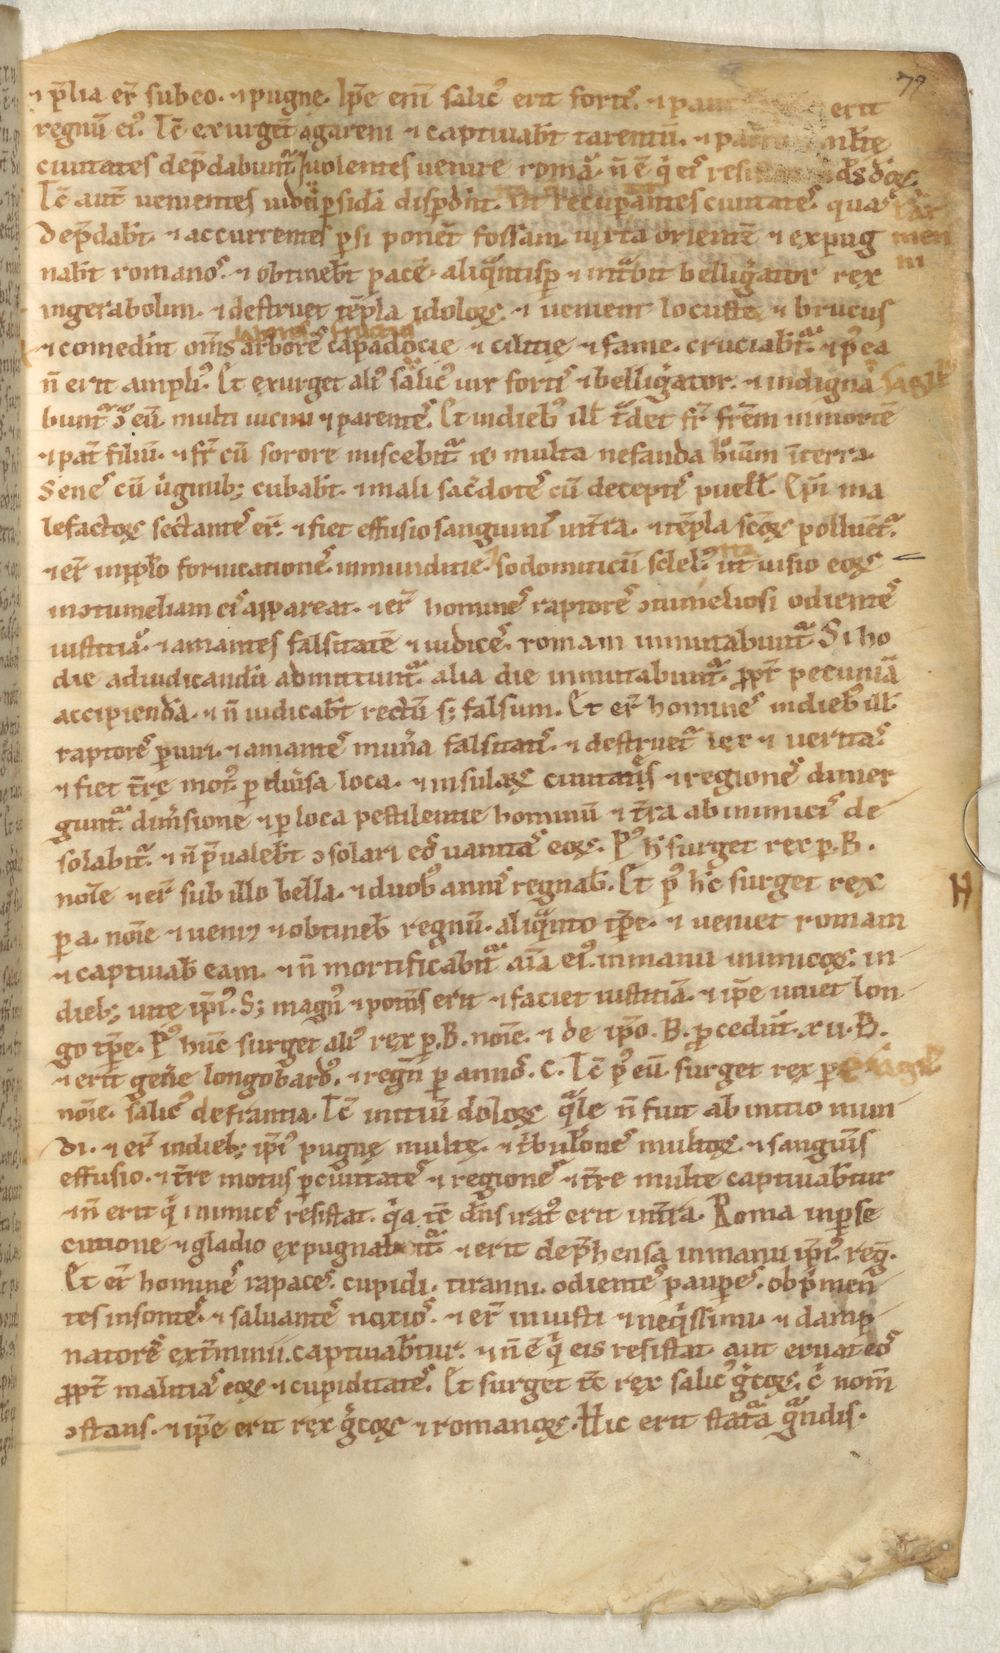 79
⁊ p̄lia er̄ sub eo. ⁊ pugne. Ip̄e eni᷑ salicꝰ erit fortis. ⁊ erit
regnū eiꝰ. Tc̄ exurget agareni ⁊ captiuab̄t tarentū. ⁊ multe
ciuitates dep̄dabunt᷑. ⁊ uolentes uenire romā. n̄ ē q̇ eis resistat ds̄ dōꝝ
Tc̄ aut̄ uenientes disp̄dn̄t. recuꝑantes ciuitates quas
dep̄dab̄t. ⁊ accurrentes ꝑsi ponēt fossam iuxta orientē ⁊ expug
nab̄t romanos. ⁊ obtineb̄t pacē aliqͣntisꝑ ⁊ int̄bit belligͣator rex
ingerabolim. ⁊ destruet tēpla idoloꝝ. ⁊ uenient locuste ⁊ brucus
⁊ comedn̄t om̄s arbores capadocie ⁊ cilitie ⁊ fame cruciabt᷑. ⁊ p̄ea
n̄ erit ampliꝰ. Et exurget aliꝰ salicꝰ uir fortis ⁊ belligͣator. ⁊ indignā
bunt᷑ ꝯ̄ eū multi uicini ⁊ parentes. Et in diebꝰ ill̄ t̄det fr̄ fr̄em in mortē
⁊ pat̄ filiū. ⁊ fr̄ cū sorore miscebit᷑ ⁊ multa nefanda hoium in terra.
Senes cū uiginibꝫ cubab̄t. ⁊ mali sac̄dotes cū deceptis puell̄. Ep̄i ma
lefactoꝝ sectantes er̄. ⁊ fiet effusio sanguinis in t̄ra. ⁊ tēpla sc̄oꝝ polluēt᷑
⁊ er̄ in pplo fornicationes. inmunditie. sodomiticū scelꝰ. ut uisio eoꝝ
in ꝯtumeliam eis appareat. ⁊ er̄ homines raptores ꝯtumeliosi odientes
iustitiā. ⁊ amantes falsitatē ⁊ iudices romam inmutabunt᷑. Si ho
die ad iudicandū admittunt᷑. alia die inmutabunt᷑. ꝓpt̄ pecuniā
accipienda. ⁊ n̄ iudicab̄t rectū sꝫ falsum. Et er̄ homines in diebꝰ ill̄.
raptores ꝑiuri. ⁊ amantes mun̄a falsitatis. ⁊ destruet᷑ lex ⁊ ueritas
⁊ fiet t̄rę motꝰ ꝑ diūsa loca. ⁊ insulaꝝ ciuitates ⁊ regiones dimer
gunt᷑ dim̄sione ⁊ ꝑ loca pestilentie hominū ⁊ t̄ra ab inimicis de
solabit᷑. ⁊ n̄ p̄ualeb̄t ꝯsolari eos uanitas eoꝝ. Pꝰ h̄ surget rex ꝑ .B.
noīe ⁊ er̄ sub illo bella. ⁊ duobꝰ annis regnab̄. Et pꝰ hc̄ surget rex
ꝑ a. noīe ⁊ ueniꝫ ⁊ obtineb̄ regnū. aliqͣnto tp̄e. ⁊ ueniet romam
⁊ captiuab̄ eam. ⁊ n̄ mortificabit᷑ aīa eiꝰ. in manu inimicoꝝ. in
diebꝫ uite ip̄iꝰ. Sꝫ magnꝰ ⁊ potn̄s erit ⁊ faciet iustitiā. ⁊ ip̄e uiuet lon
go tp̄e. Pꝰ hūc surget aliꝰ rex ꝑ .B. noīe. ⁊ de ip̄o .B. ꝓcedūt. xii. B.
⁊ erit gen̄e longobardꝰ. ⁊ regn̄ ꝑ annos. C. Tc̄ pꝰ eū surget rex ꝑ
noīe. salicꝰ de frantia. Tc̄ initiū doloꝝ qͣle n̄ fuit ab initio mun
di. ⁊ er̄ in diebꝫ ip̄iꝰ pugnę multę. ⁊ t̄bulones multoꝝ. ⁊ sanguīs
effusio. ⁊ t̄re motus ꝑ ciuitates ⁊ regiones ⁊ t̄re multe captiuabunt᷑
⁊ n̄ erit q̇ inimicis resistat. qͣa tc̄ dn̄s iratꝰ erit in t̄ra. Roma in ꝑse
cutione ⁊ gladio expugnabit᷑ ⁊ erit dep̄hensa in manu ip̄iꝰ reg̅.
Et er̄ homines rapaces. cupidi. tiranni. odientes pauꝑes. obp̄men
tes insontes. ⁊ saluantes noxios. ⁊ er̄ iniusti ⁊ neqͥssimi. ⁊ damp
natores ext̄minii captiuabunt᷑. ⁊ n̄ ē q̇ eis resistat aut eruat eos
ꝓpt̄ malitias eoꝝ ⁊ cupiditates. Et surget tc̄ rex salicꝰ gͣcoꝝ. cͥ nom̄
ꝯstans. ⁊ ip̄e erit rex gͣcoꝝ ⁊ romanoꝝ. Hic erit statͣa gͣndis.
H